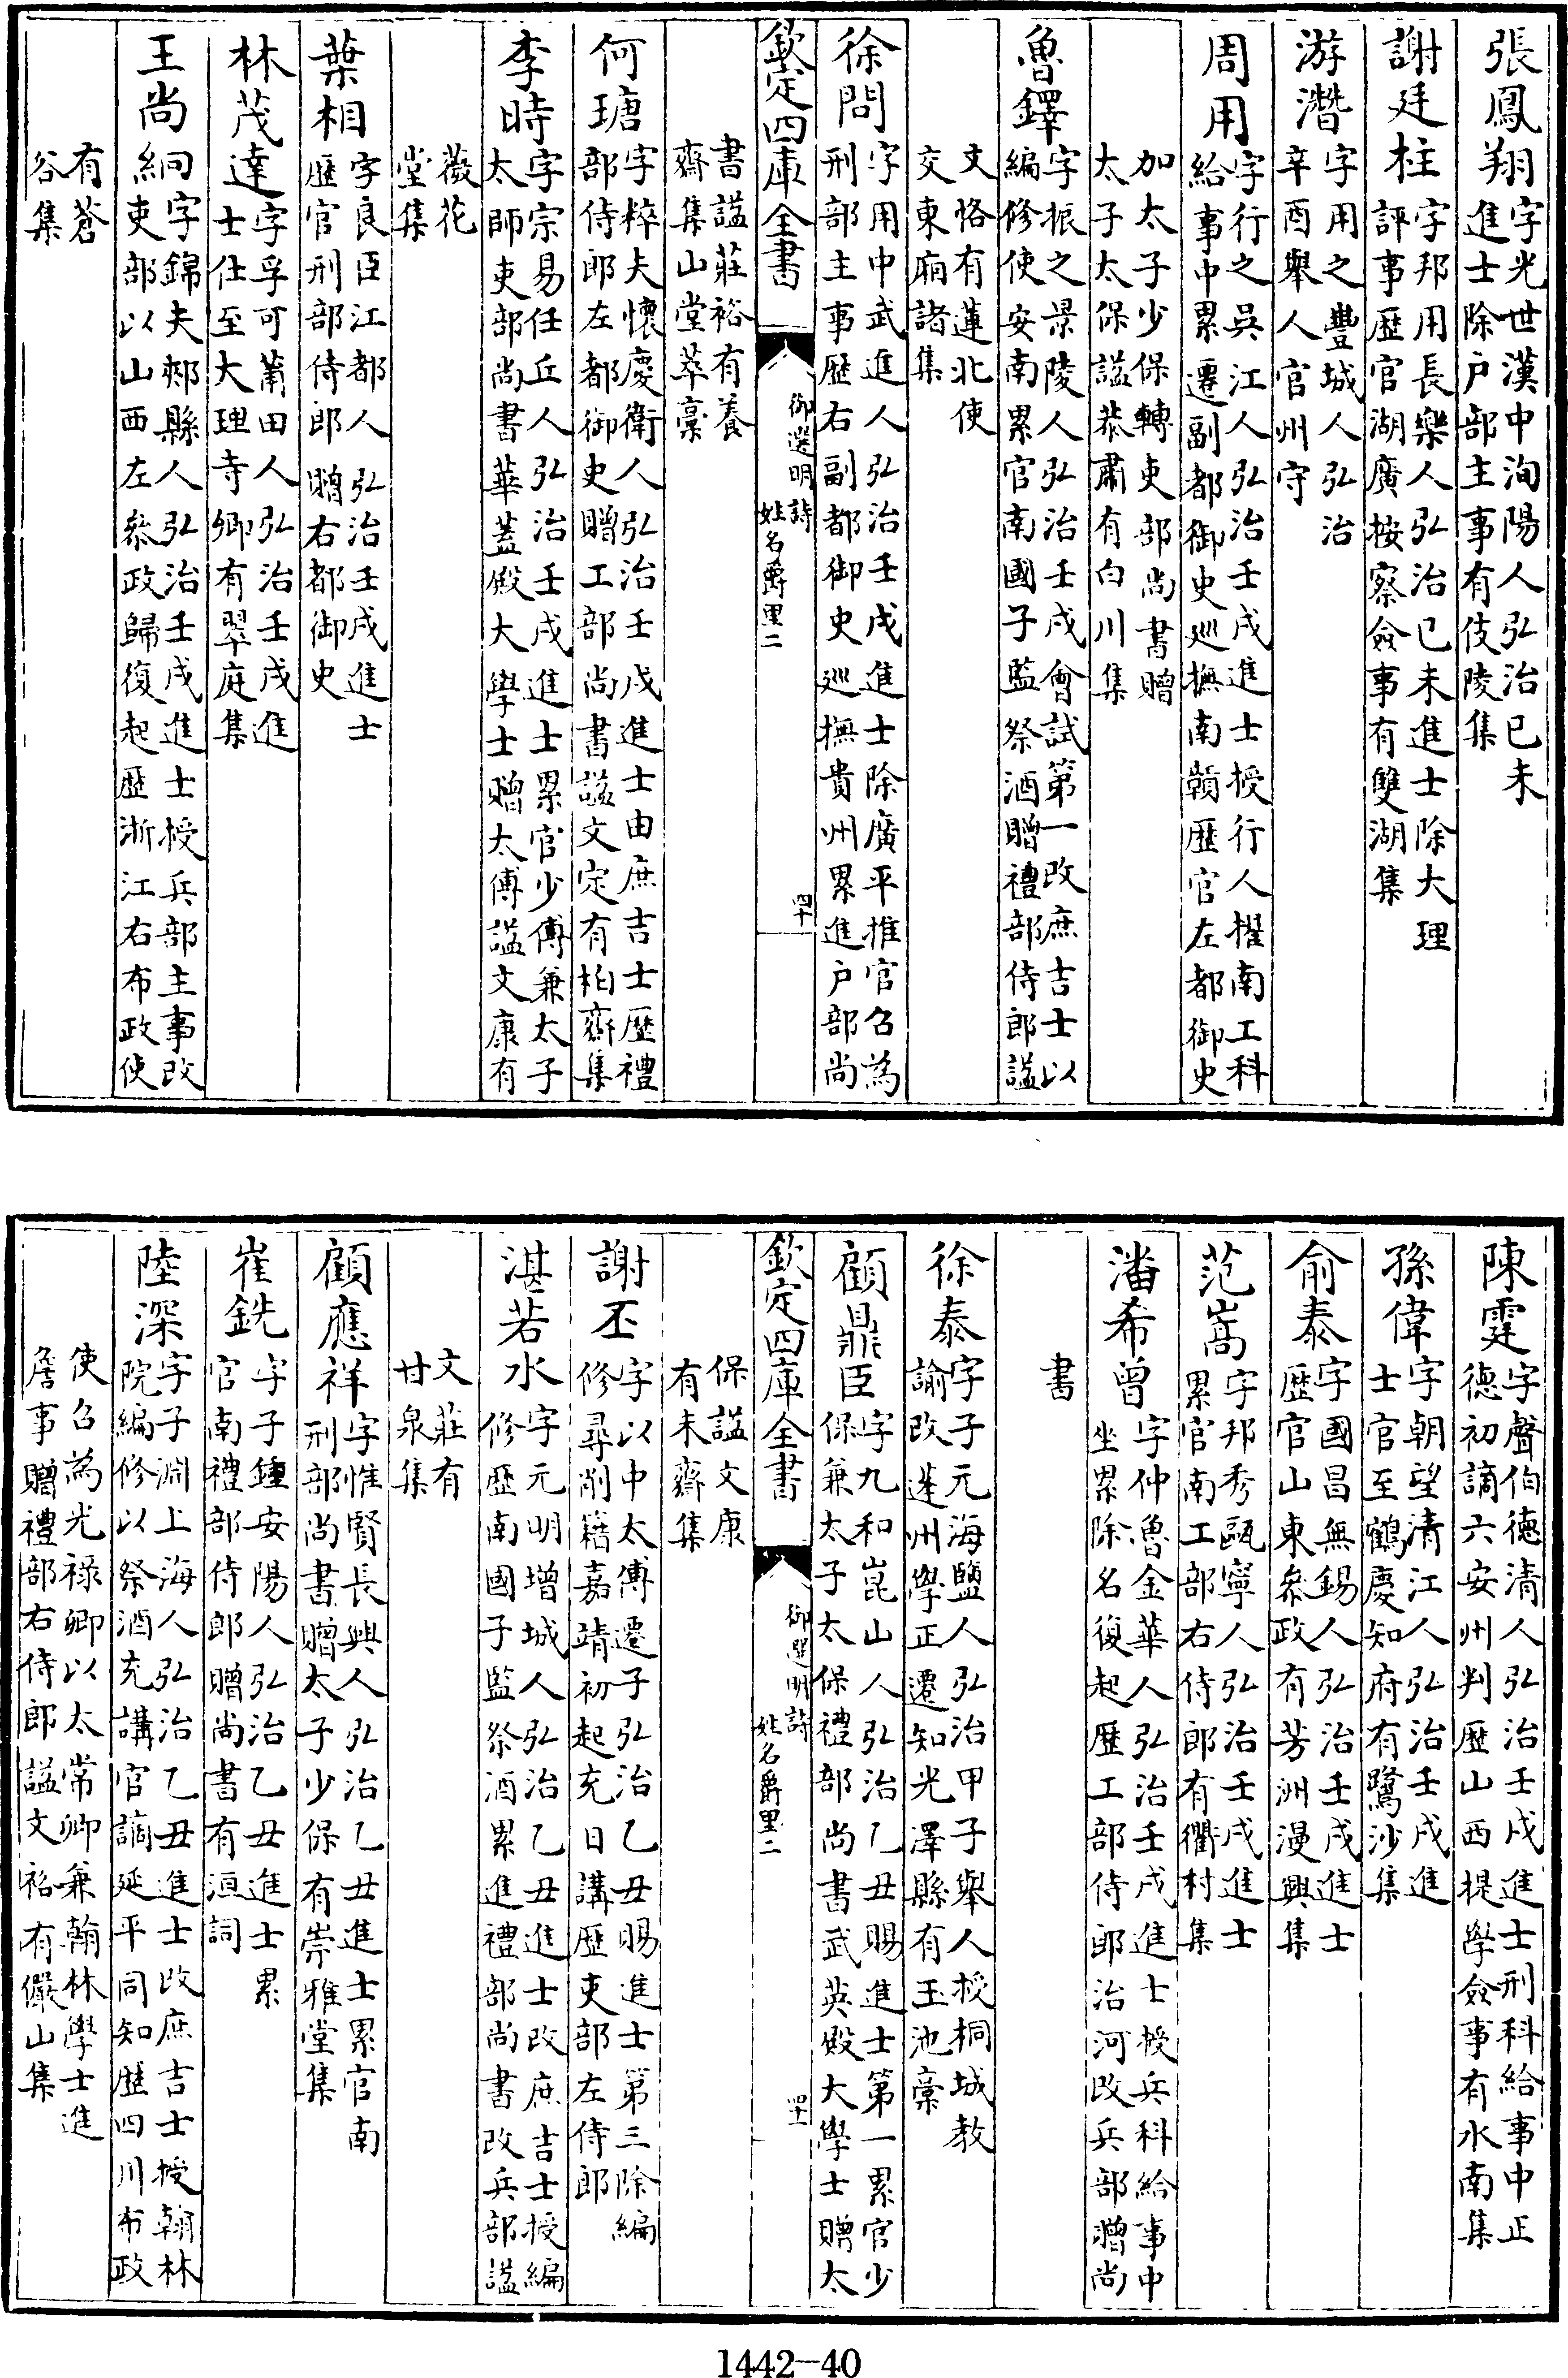 張鳳翔字光世漢中洵陽人弘治已未
進士除户部主事有伎陵集
謝廷柱字邦用長樂人弘治已未進士除大理
評事歷官湖廣按察僉事有雙湖集
游濳字用之豐城人弘治
辛酉舉人官州守
周用字行之吳江人弘治壬戌進士授行人擢南工科
給事中累遷副都御史巡撫南贑歷官左都御史
加太子少保轉吏部尚書贈
太子太保諡恭肅有白川集
魯鐸字振之景陵人弘治壬戌會試第一改庶吉士以
編修使安南累官南國子監祭酒贈禮部侍郎諡
文恪有蓮北使
交東廂諸集
徐問字用中武進人弘治壬戌進士除廣平推官召為
刑部主事歷右副都御史巡撫貴州累進户部尚
欽定四庫全書
御選明詩
姓名爵里二
四十
書諡莊裕有養
齋集山堂萃稾
何瑭字粹夫懷慶衛人弘治壬戌進士由庶吉士歷禮
部侍郎左都御史贈工部尚書諡文定有柏齋集
李時字宗易任丘人弘治壬戌進士累官少傅兼太子
太師吏部尚書華蓋殿大學士贈太傅諡文康有
薇花
堂集
葉相字良臣江都人弘治壬戌進士
歷官刑部侍郎贈右都御史
林茂達字孚可莆田人弘治壬戌進
士仕至大理寺卿有翠庭集
王尚絅字錦夫郟縣人弘治壬戌進士授兵部主事改
吏部以山西左叅政歸復起歷浙江右布政使
有蒼
谷集
陳霆字聲伯德清人弘治壬戌進士刑科給事中正
德初謫六安州判歷山西提學僉事有水南集
孫偉字朝望清江人弘治壬戌進
士官至鶴慶知府有鷺沙集
俞泰字國昌無錫人弘治壬戌進士
歷官山東叅政有芳洲漫興集
范嵩字邦秀甌寧人弘治壬戌進士
累官南工部右侍郎有衢村集
潘希曾字仲魯金華人弘治壬戌進士授兵科給事中
坐累除名復起歷工部侍郎治河改兵部贈尚
書
徐泰字子元海鹽人弘治甲子舉人授桐城教
諭改蓬州學正遷知光澤縣有玉池稾
顧鼎臣字九和崑山人弘治乙丑賜進士第一累官少
保兼太子太保禮部尚書武英殿大學士贈太
欽定四庫全書
御選明詩
姓名爵里二
四十一
保諡文康
有未齋集
謝丕字以中太傅遷子弘治乙丑賜進士第三除編
修尋削籍嘉靖初起充日講歷吏部左侍郎
湛若水字元明增城人弘治乙丑進士改庶吉士授編
修歷南國子監祭酒累進禮部尚書改兵部諡
文莊有
甘泉集
顧應祥字惟賢長興人弘治乙丑進士累官南
刑部尚書贈太子少保有崇雅堂集
崔銑字子鍾安陽人弘治乙丑進士累
官南禮部侍郎贈尚書有洹詞
陸深字子淵上海人弘治乙丑進士改庶吉士授翰林
院編修以祭酒充講官謫延平同知歷四川布政
使召為光禄卿以太常卿兼翰林學士進
詹事贈禮部右侍郎諡文裕有儼山集
1442-40